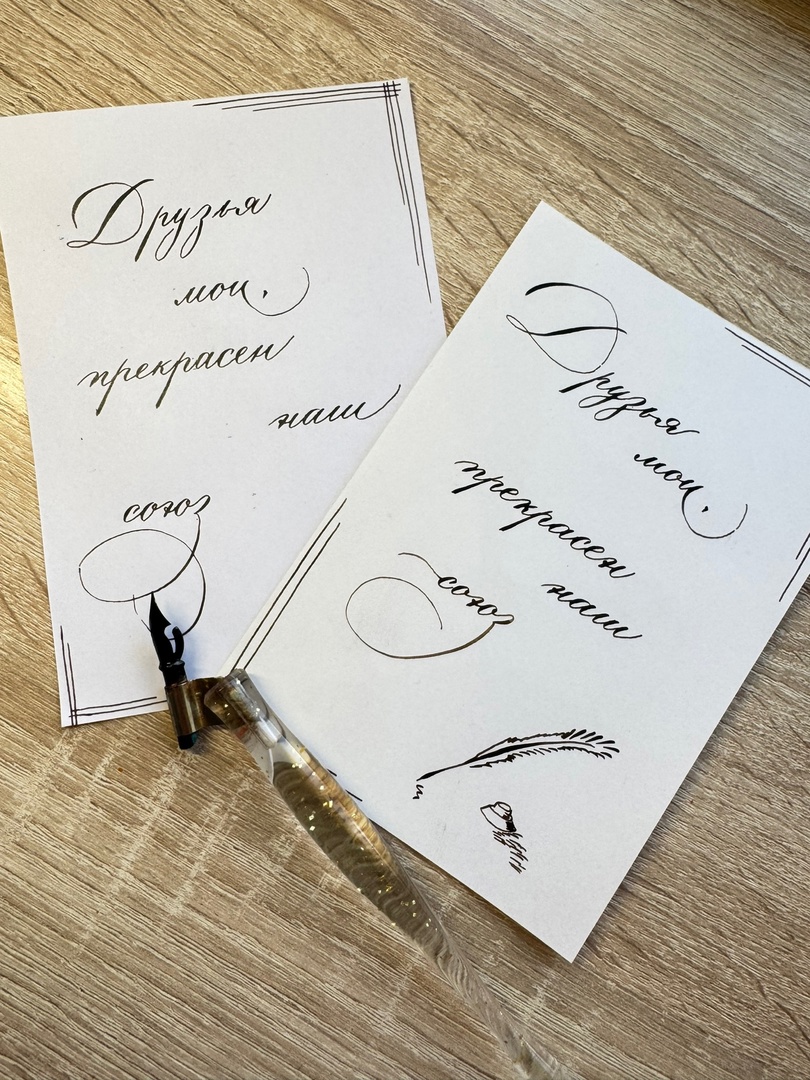 Друзья
мои,
прекрасен
наш
союз
Друзья
мои,
прекрасен
наш
союз